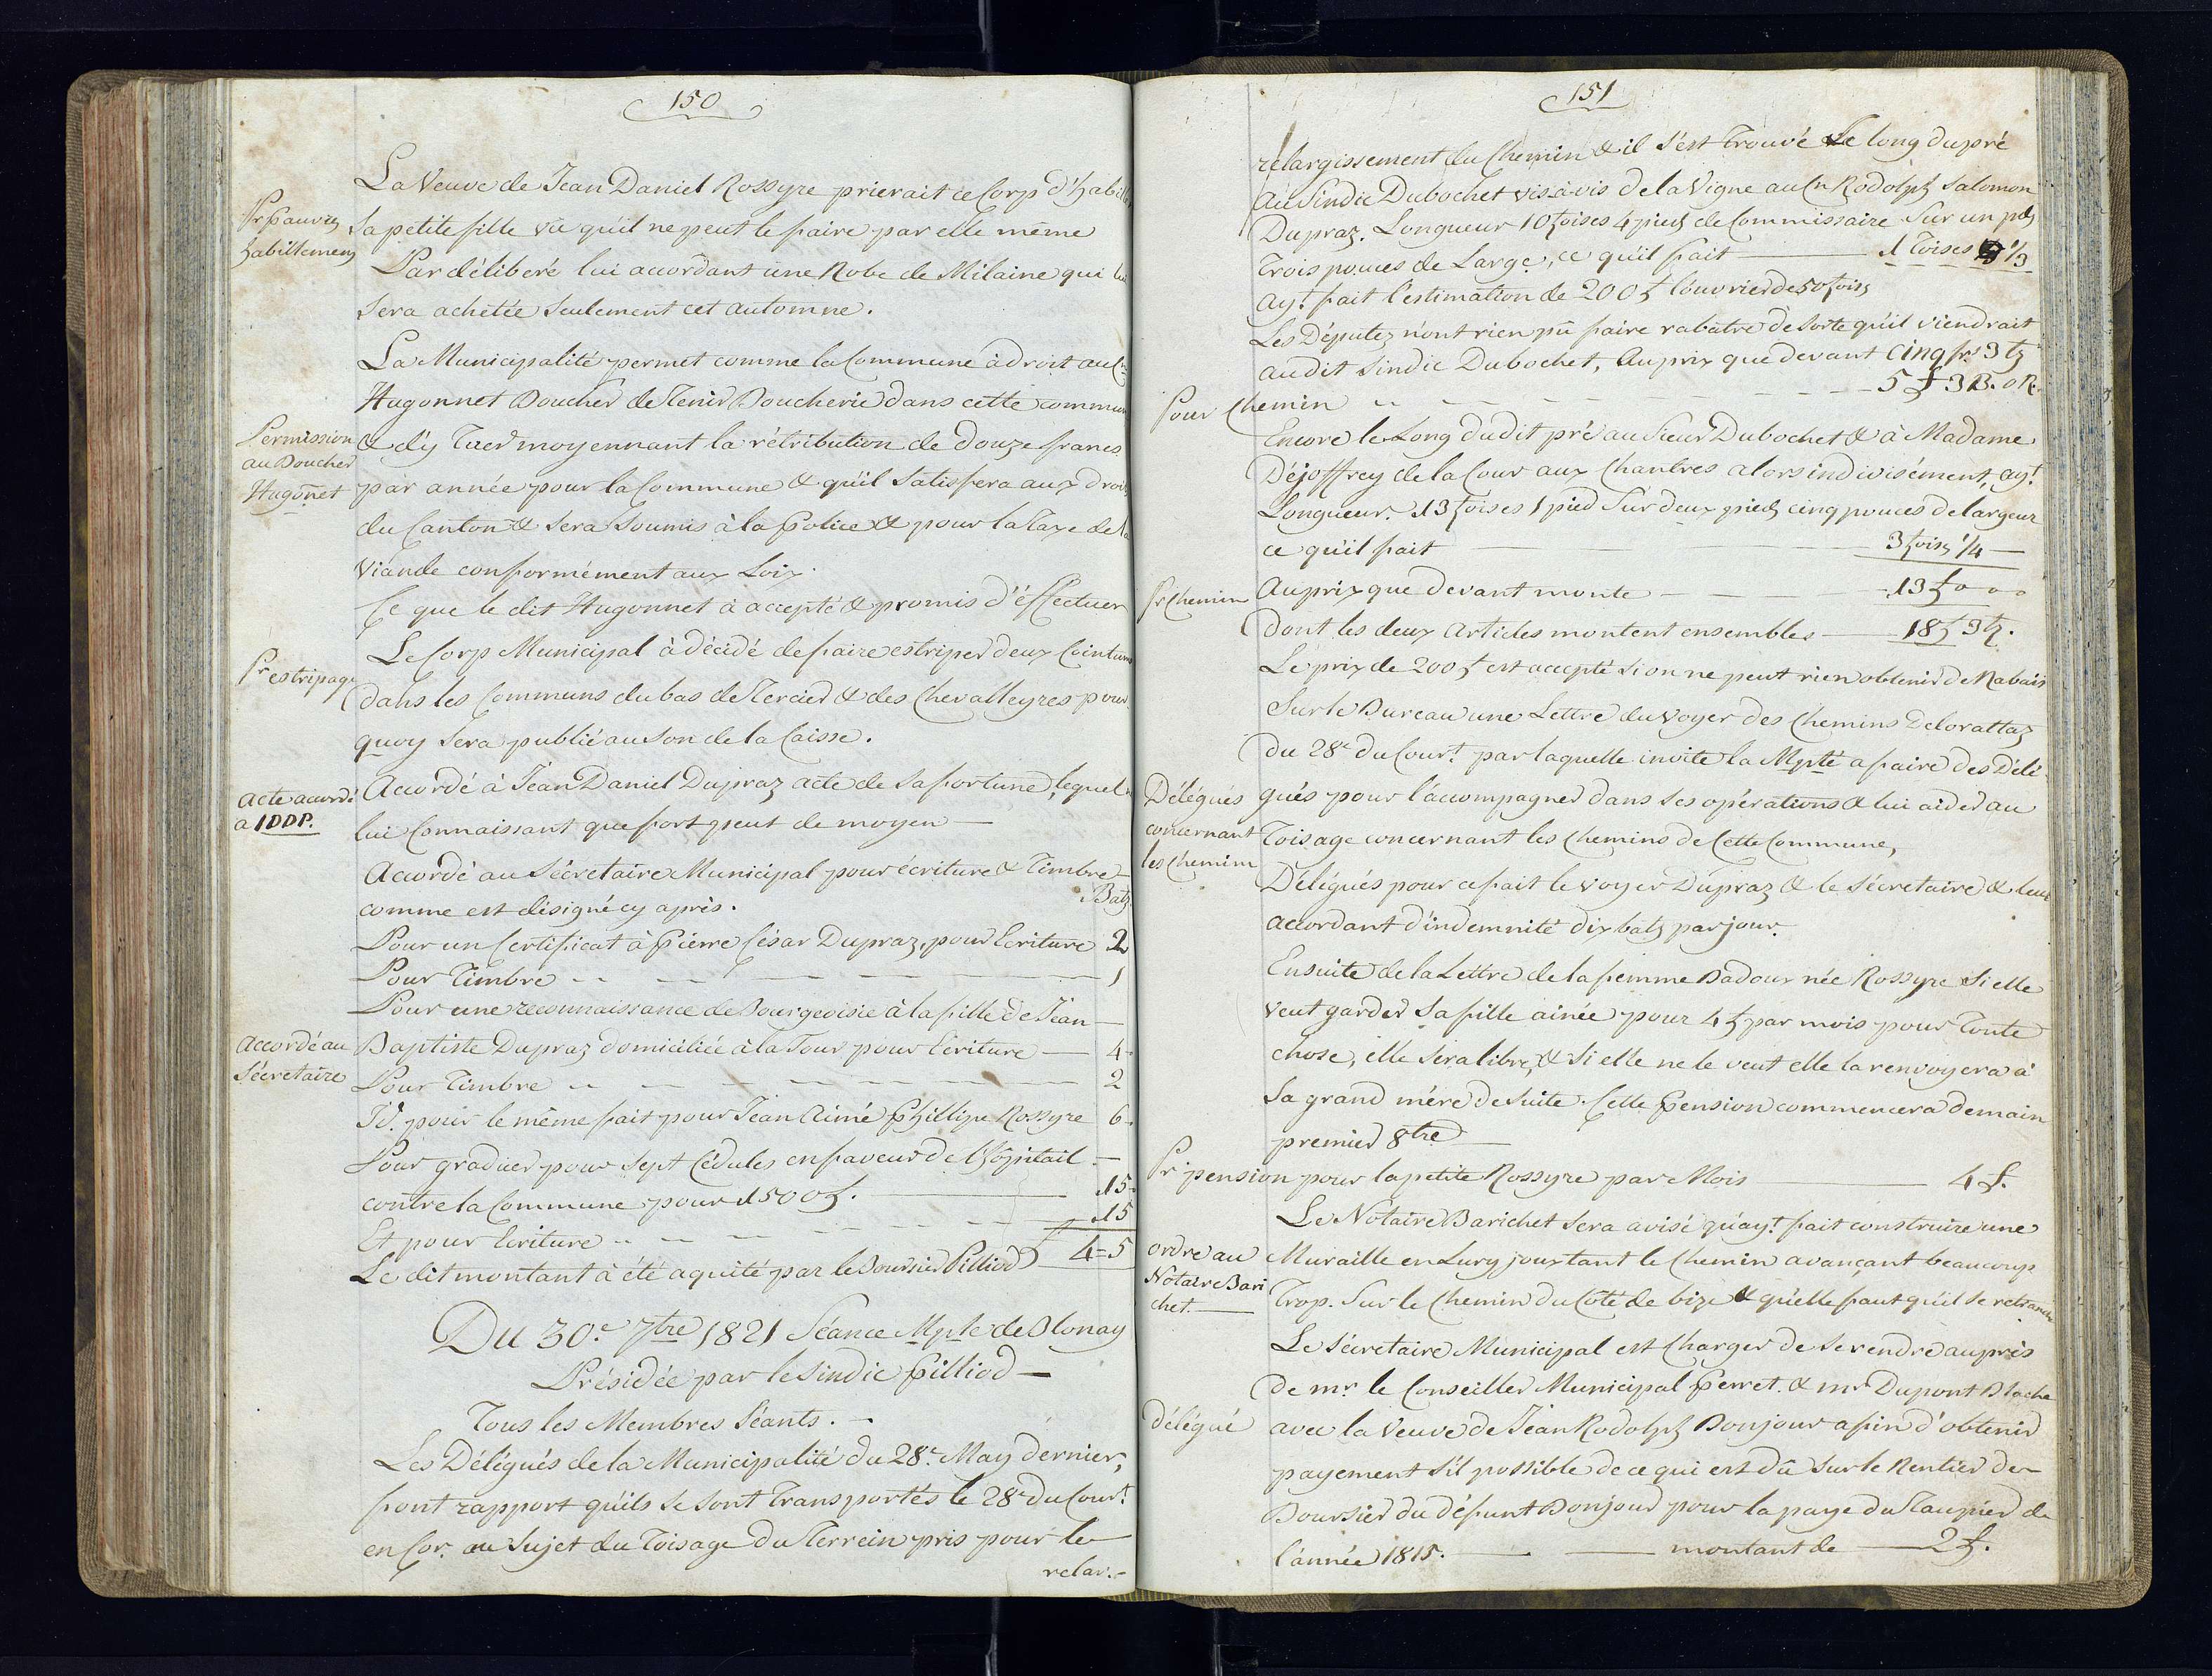 150
La Veuve de Jean Daniel Rossyre prierait ce Corp d'habiller
Pr pauvres
habillemens
Sa petite fille vû qu'il ne peut le faire par elle même
Par délibéré lui accordant une Robe de Milaine qui lui
Sera achetée Seulement cet automne.
La Municipalité permet comme la Commune à droit au Cn
Hugonnet Boucher de Tenir Boucherie dans cette commune
Permission
au Boucher
Hugonnet
& d'y Tuer moyennant la rétribution de douze francs
par année pour la Commune & qu'il Satisfera aux droits
du Canton & Sera Soumis à la Police & pour la Taxe de la
Viande conformément aux Loix.
Ce que le dit Hugonnet à accepté & promis d'éffectuer
Le Corp Municipal à décidé de faire estriper deux Cointures
Pr estripage
dans les Communs du bas de Tercier & des Chevalleyres pour
quoy Sera publié au Son de la Caisse.
Acte accordé
a JDDP.
Accordé à Jean Daniel Dupraz acte de Sa fortune, lequel
lui Connaissant que fort peut de moyen —
Accordé au Sécretaire Municipal pour écriture & Timbre
comme est désigné cy après. Batz
Pour un Certificat à Pierre César Dupraz, pour Ecriture 2
Pour Timbre — — — 1
Pour une reconnaissance de Bourgeoisie à la fille de Jean —
Accordé au
Sécretaire
Baptiste Dupraz domiciliée à la Tour pour Ecriture — 4
Pour Timbre — — — 2
Id. pour le même fait pour Jean Aimé Phillipe Rossyre 6
Pour graduer pour Sept Cédules en faveur de l'hôpitail —
contre la Commune pour 1500 f. — 15
Et pour Ecriture — — — 15
Le dit montant à été aquité par le Boursier Pilliod f 4=5
Du 30.e 7bre 1821 Séance Mple de Blonay
Présidée par le Sindic Pilliod —
Tous les Membres Séants. —
Les Délégués de la Municipalité du 28.e May dernier,
font rapport qu'ils se sont Transportés le 28e du Court
en Cor. au Sujet du Toisage du Terrein pris pour le
relar.-
151
rélargissement du Chemin & il s'est Trouvé Le long du pré
au Sindic Dubochet vis-à-vis de la Vigne au Cn Rodolph Salomon
Dupraz. Longueur 10 toises 4 pieds de Commissaire Sur un pds
Trois pouces de Large, ce qu'il fait — 1 Toises 1/3
Ayt fait l'estimation de 200 f l'ouvrier de 50 toises
Les Députez n'ont rien pû faire rabatre de Sorte qu'il viendrait
au dit Sindic Dubochet, au prix que devant cinq frs 3 tz
Pour Chemin — — — 5 f 3 B. 0 R.
Encore le Long du dit pré au Sieur Dubochet & à Madame
Déjoffrey de la Cour aux Chantres alors indivisément, ayt
Longueur. 13 toises 1 pied Sur deux pieds cinq pouces de largeur
ce qu'il fait — 3 toises 1/4 —
Pr Chemin
Au prix que devant monte — 13 f 0 - 0
Dont les deux Articles montent ensembles — 18 f 3 tz.
Le prix de 200 f est accepté Si on ne peut rien obtenir de Rabais
Sur le Bureau une Lettre du Voyer des Chemins Delorattaz
du 28e du Court par laquelle invite la Mplté a faire des Délé-
Délégués
concernant
les Chemins
gués pour l'accompagner dans Ses opérations & lui aider au
Toisage concernant les Chemins de Cette Commune,
Délégués pour ce fait le Voyer Dupraz & le Sécretaire & leur
accordant d'indemnité dix batz par jour.
Ensuite de la Lettre de la femme Badour née Rossyre Si elle
veut garder Sa fille ainée pour 4 f par mois pour Toute
chose, elle Sera libre, & Si elle ne le veut elle la renvoyera à
Sa grand mére de Suite. Cette Pension commencera demain
premier 8bre —
Pr pension pour la petite Rossyre par Mois — 4 f.
Le Notaire Barichet Sera avisé qu'ayt fait construire une
ordre au
Notaire Bari
chet. —
Muraille en Lury jouxtant le Chemin avançant beaucoup
Trop. Sur le Chemin du Côté de bize & qu'elle faut qu'il Se retranche
Le Sécretaire Municipal est Charger de Se rendre auprès
de mr le Conseiller Municipal Perret. & mr Dupont Blache
Délégué
avec la Veuve de Jean Rodolph Bonjour afin d'obtenir
payement S'il possible de ce qui est dû Sur le Rentier de
Boursier du défunt Bonjour pour la paye du Taupier de
l'année 1815. — — montant de — 2 f.